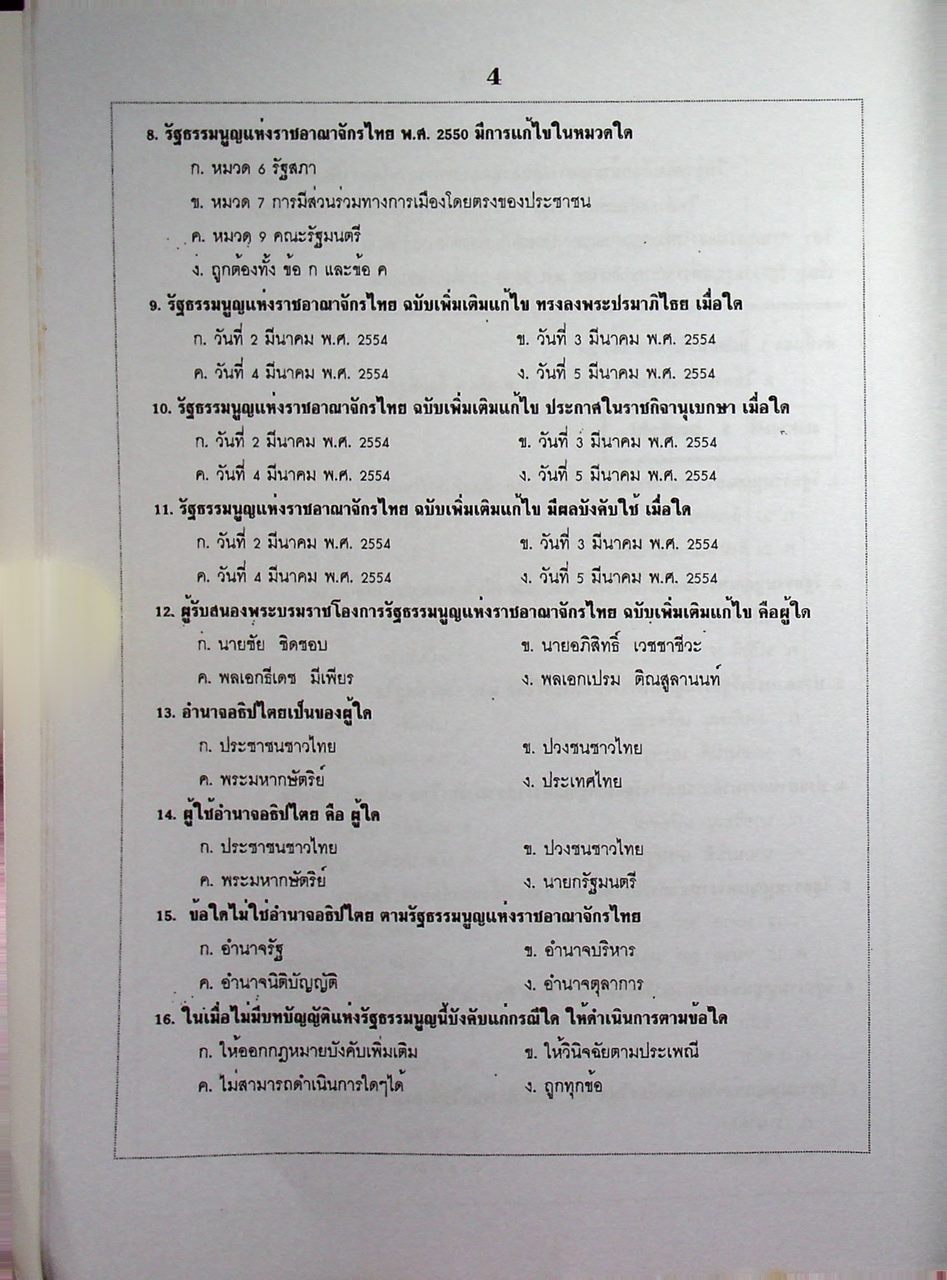 4
8. รัฐธรรมนูญแห่งราชอาณาจักรไทย พ.ศ. 2550 มีการแก้ไขในหมวดใด
ก. หมวด 6 รัฐสภา
ข. หมวด 7 การมีส่วนร่วมทางการเมืองโดยตรงของประชาชน
ค. หมวด 9 คณะรัฐมนตรี
ง. ถูกต้องทั้ง ข้อ ก และข้อ ค
9. รัฐธรรมนูญแห่งราชอาณาจักรไทย ฉบับเพิ่มเติมแก้ไข ทรงลงพระปรมาภิไธย เมื่อใด
ก. วันที่ 2 มีนาคม พ.ศ. 2554 ข. วันที่ 3 มีนาคม พ.ศ. 2554
ค. วันที่ 4 มีนาคม พ.ศ. 2554 ง. วันที่ 5 มีนาคม พ.ศ. 2554
10. รัฐธรรมนูญแห่งราชอาณาจักรไทย ฉบับเพิ่มเติมแก้ไข ประกาศในราชกิจานุเบกษา เมื่อใด
ก. วันที่ 2 มีนาคม พ.ศ. 2554 ข. วันที่ 3 มีนาคม พ.ศ. 2554
ค. วันที่ 4 มีนาคม พ.ศ. 2554 ง. วันที่ 5 มีนาคม พ.ศ. 2554
11. รัฐธรรมนูญแห่งราชอาณาจักรไทย ฉบับเพิ่มเติมแก้ไข มีผลบังคับใช้ เมื่อใด
ก. วันที่ 2 มีนาคม พ.ศ. 2554 ข. วันที่ 3 มีนาคม พ.ศ. 2554
ค. วันที่ 4 มีนาคม พ.ศ. 2554 ง. วันที่ 5 มีนาคม พ.ศ. 2554
12. ผู้รับสนองพระบรมราชโองการรัฐธรรมนูญแห่งราชอาณาจักรไทย ฉบับเพิ่มเติมแก้ไข คือผู้ใด
ก. นายชัย ชิดชอบ ข. นายอภิสิทธิ์ เวชชาชีวะ
ค. พลเอกธีเดช มีเพียร ง. พลเอกเปรม ติณสูลานนท์
13. อำนาจอธิปไตยเป็นของผู้ใด
ก. ประชาชนชาวไทย ข. ปวงชนชาวไทย
ค. พระมหากษัตริย์ ง. ประเทศไทย
14. ผู้ใช้อำนาจอธิปไตย คือ ผู้ใด
ก. ประชาชนชาวไทย ข. ปวงชนชาวไทย
ค. พระมหากษัตริย์ ง. นายกรัฐมนตรี
15. ข้อใดไม่ใช่อำนาจอธิปไตย ตามรัฐธรรมนูญแห่งราชอาณาจักรไทย
ก. อำนาจรัฐ ข. อำนาจบริหาร
ค. อำนาจนิติบัญญัติ ง. อำนาจตุลาการ
16. ในเมื่อไม่มีบทบัญญัติแห่งรัฐธรรมนูญนี้บังคับแก่กรณีใด ให้ดำเนินการตามข้อใด
ก. ให้ออกกฎหมายบังคับเพิ่มเติม ข. ให้วินิจฉัยตามประเพณี
ค. ไม่สามารถดำเนินการใดๆได้ ง. ถูกทุกข้อ